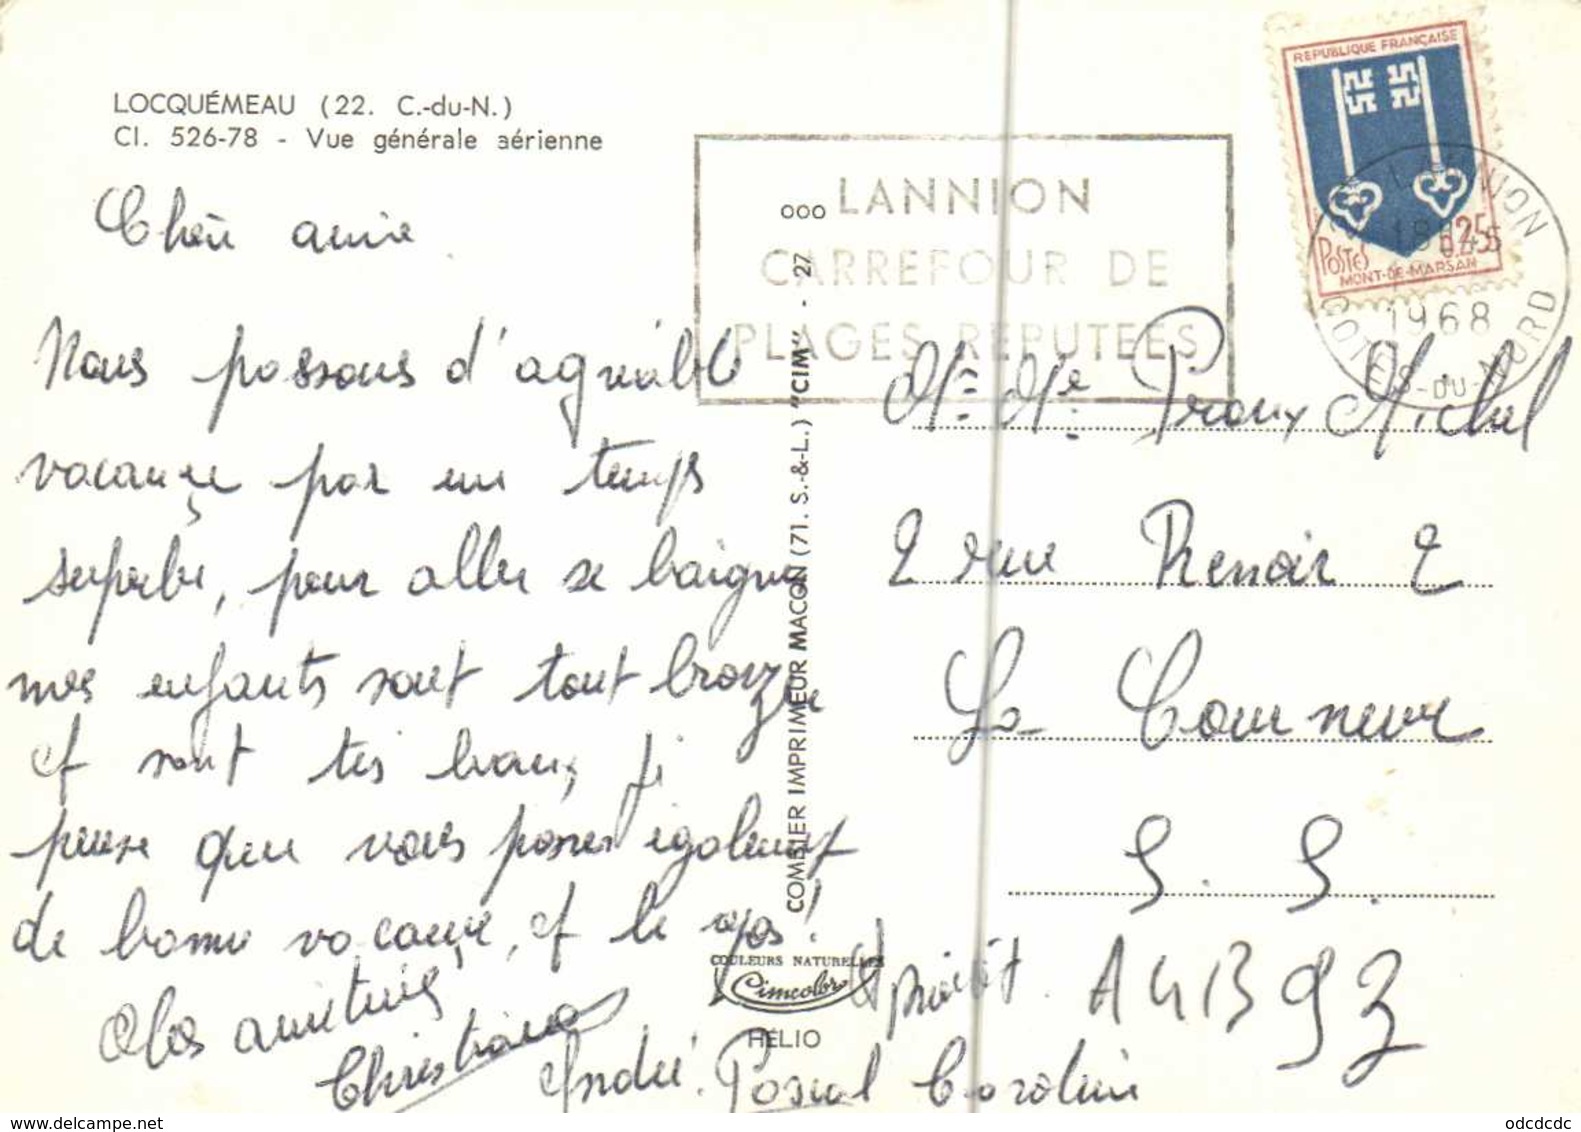 LOCQUÉMEAU (22. C.-du-N.)
CI. 526-78 - Vue générale aérienne
REPUBLIQUE FRANÇAISE
0.25
POSTES
MONT-DE-MARSAN
ooo LANNION
CARREFOUR DE
PLAGES REPUTEES
LANNION
1968
COTES-DU-NORD
Chère amie
Nous passons d'agréable
vacançe par un temps
superbe, pour aller se baigner
mes enfants sont tout bronzer
et sont très beaux, je
pense que vous passer également
de bonne vacance, et le repos!
Mes amitiés
Christiane
André. Pascal Caroline
COMBIER IMPRIMEUR MACON (71. S.-&-L.) "CIM" - 27
COULEURS NATURELLES
Cimcolor
HELIO
Mr Me Proux Michel
2 rue Renoir 2
La Courneuve
S. S.
A 4 B 93
delcampe.net
odcdcdc